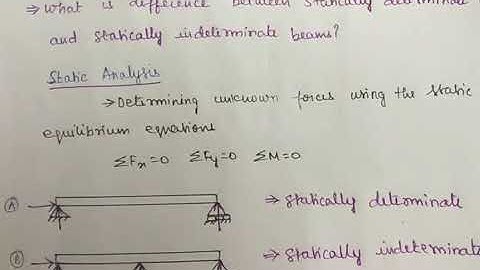 ⇒ what is difference between statically determinate
and statically indeterminate beams?
Static Analysis
→ Determining unknown forces using the static
equilibrium equations
ΣFx=0 ΣFy=0 ΣM=0
A ⇒ statically determinate
B ⇒ statically indeterminate